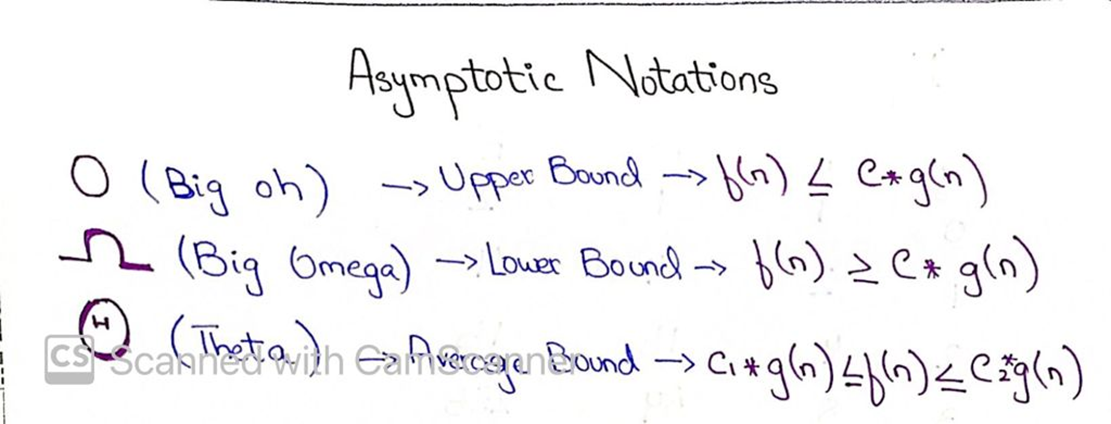 Asymptotic Notations
O (Big oh) → Upper Bound → f(n) ≤ C*g(n)
Ω (Big Omega) → Lower Bound → f(n) ≥ C* g(n)
Θ (Theta) → Average Bound → C₁*g(n)≤f(n)≤C₂*g(n)
CS Scanned with CamScanner